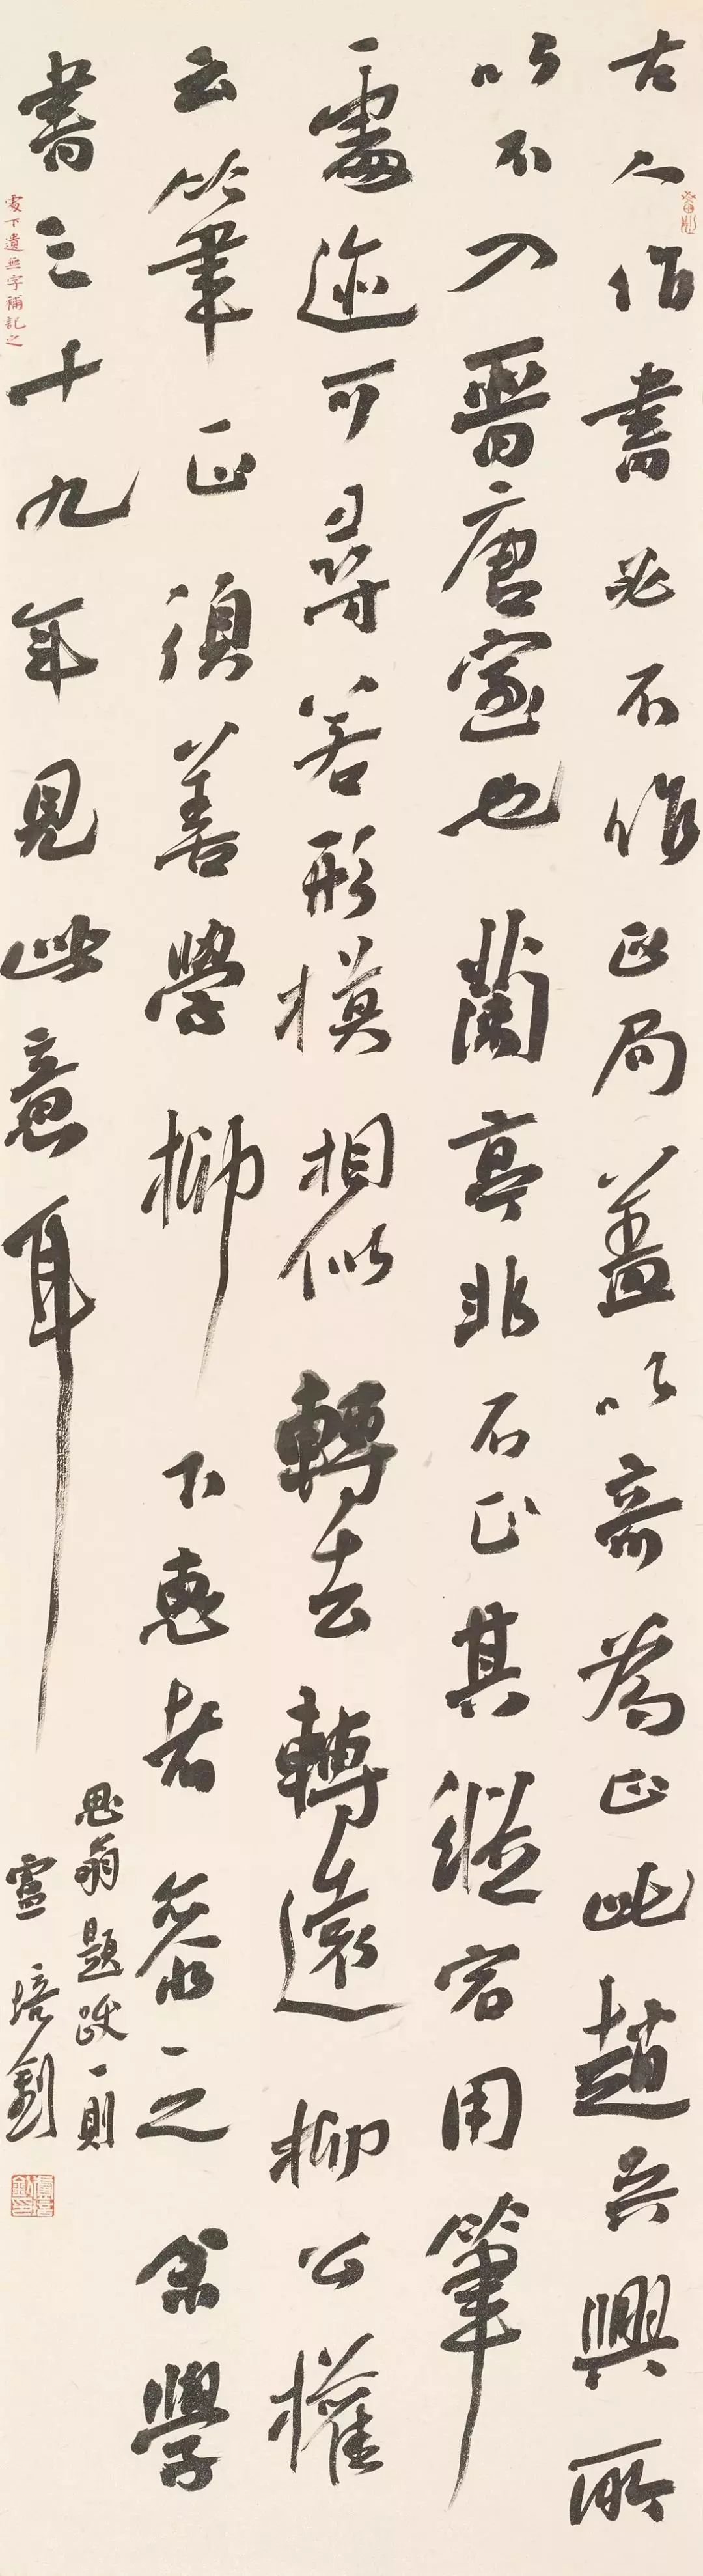 古人作書必不作正局盖以奇為正此趙吳興所
以不入晉唐室也蘭亭非不正其縱宕用筆
處迹可尋若形模相似轉去轉遠柳公權
云筆正須善學柳下惠者參之余學
書三十九年見此意耳
思翁題跋一則
盧培釗
處下遺無字補記之